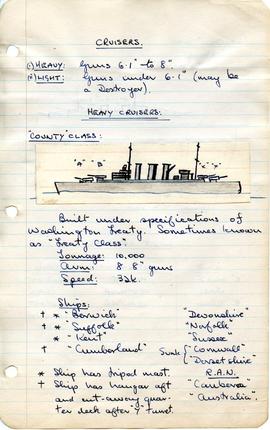 CRUISERS.
(i) HEAVY: Guns 6·1" to 8".
(ii) LIGHT: Guns under 6·1" (may be
a Destroyer).
HEAVY CRUISERS.
"COUNTY" CLASS:
"A" "B" "X" "Y"
Built under specifications of
Washington Treaty. Sometimes known
as "Treaty Class".
Tonnage: 10,000
Arm: 8 8" guns
Speed: 32k.
Ships:
† * "Berwick" "Devonshire"
† * "Suffolk" "Norfolk"
* "Kent" "Sussex"
† "Cumberland" Sunk { "Cornwall"
"Dorsetshire"
* Ship has tripod mast. R.A.N.
† Ship has hangar aft "Canberra"
and cut-away quar- "Australia".
ter deck after Y turret.